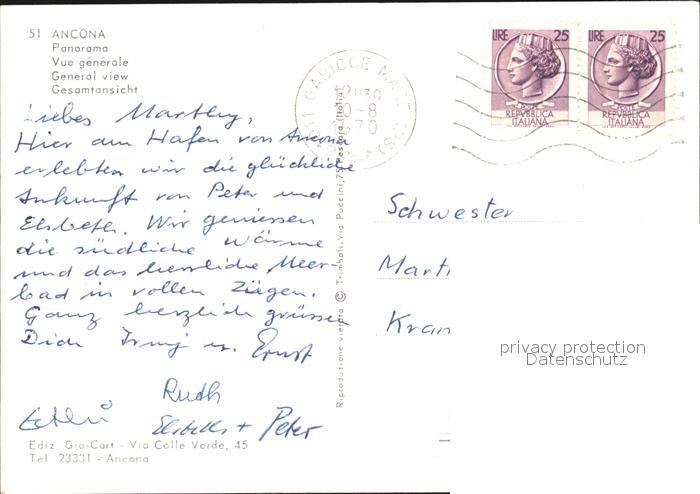 51 ANCONA
Panorama
Vue générale
General view
Gesamtansicht
Liebes Martheli,
Hier am Hafen von Ancona
erlebten wir die glückliche
Ankunft von Peter und
Elsbeth. Wir geniessen
die südliche Wärme
und das herrliche Meer-
bad in vollen Zügen.
Ganz herzlich grüssen
Dich Irmi u. Ernst
Ruth
Elsbeth + Peter
Ediz. Gio-Cart - Via Colle Verde, 45
Tel. 23331 - Ancona
Riproduzione vietata © Trimboli, Via Puccini, 75 Pescara (Italia)
GABICCE MARE
(PS)
LIRE 25
POSTE
REPVBBLICA
ITALIANA
LIRE 25
POSTE
REPVBBLICA
ITALIANA
Schwester
Marti
Kran
privacy protection
Datenschutz